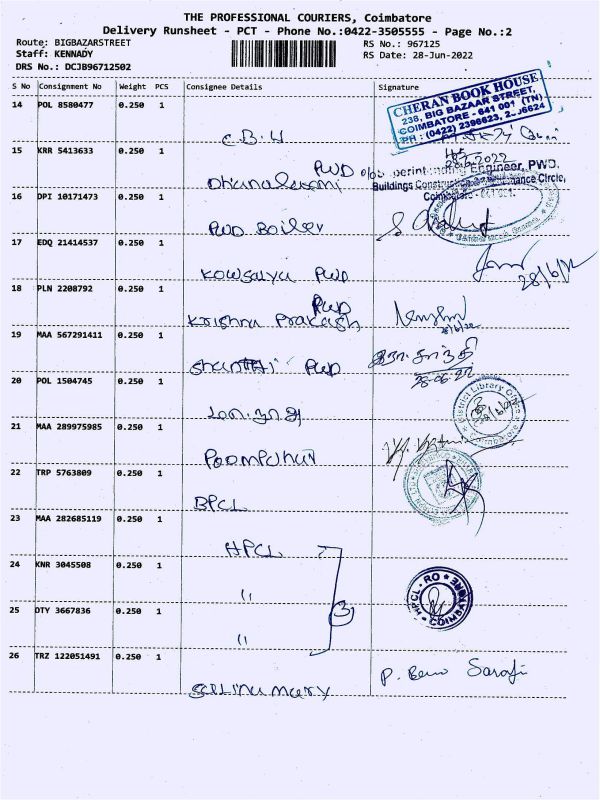 THE PROFESSIONAL COURIERS, Coimbatore
Delivery Runsheet - PCT - Phone No.:0422-3505555 - Page No.:2
Route: BIGBAZARSTREET
Staff: KENNADY
DRS No.: DCJB96712502
RS No.: 967125
RS Date: 28-Jun-2022
S No Consignment No Weight PCS Consignee Details Signature
CHERAN BOOK HOUSE
236, BIG BAZAAR STREET,
COIMBATORE - 641 001 (TN)
PH : (0422) 2396623,
14 POL 8580477 0.250 1 C.B.H
15 KRR 5413633 0.250 1 Dhanalaxmi PWD
Engineer, PWD.
Buildings
Circle,
16 DPI 10171473 0.250 1 PWD Boiler
17 EDQ 21414537 0.250 1 Kowsalya PWD
28/6/22
18 PLN 2208792 0.250 1 Krishna Prakash PWD
19 MAA 567291411 0.250 1 Shanthi PWD
28-06-22
20 POL 1504745 0.250 1
District Library Office
Coimbatore
21 MAA 289975985 0.250 1 Poompuhar
22 TRP 5763809 0.250 1 BPCL
23 MAA 282685119 0.250 1 HPCL
24 KNR 3045508 0.250 1 "
3
HPCL-RO
COIMBATORE
25 DTY 3667836 0.250 1 "
26 TRZ 122051491 0.250 1 Selina mary